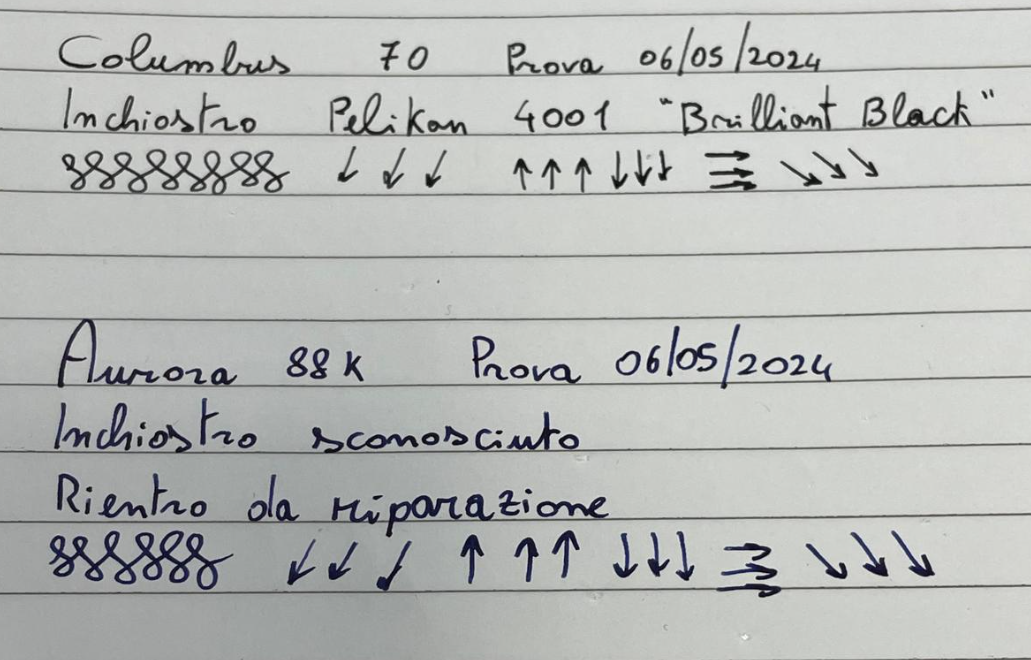 Columbus 70 Prova 06/05/2024
Inchiostro Pelikan 4001 "Brilliant Black"
↓ ↓ ↓ ↑↑↑ ↓↓↓ → ↘↘↘
Aurora 88K Prova 06/05/2024
Inchiostro sconosciuto
Rientro da riparazione
↓ ↓ ↓ ↑ ↑↑ ↓↓↓ → ↘↘↘